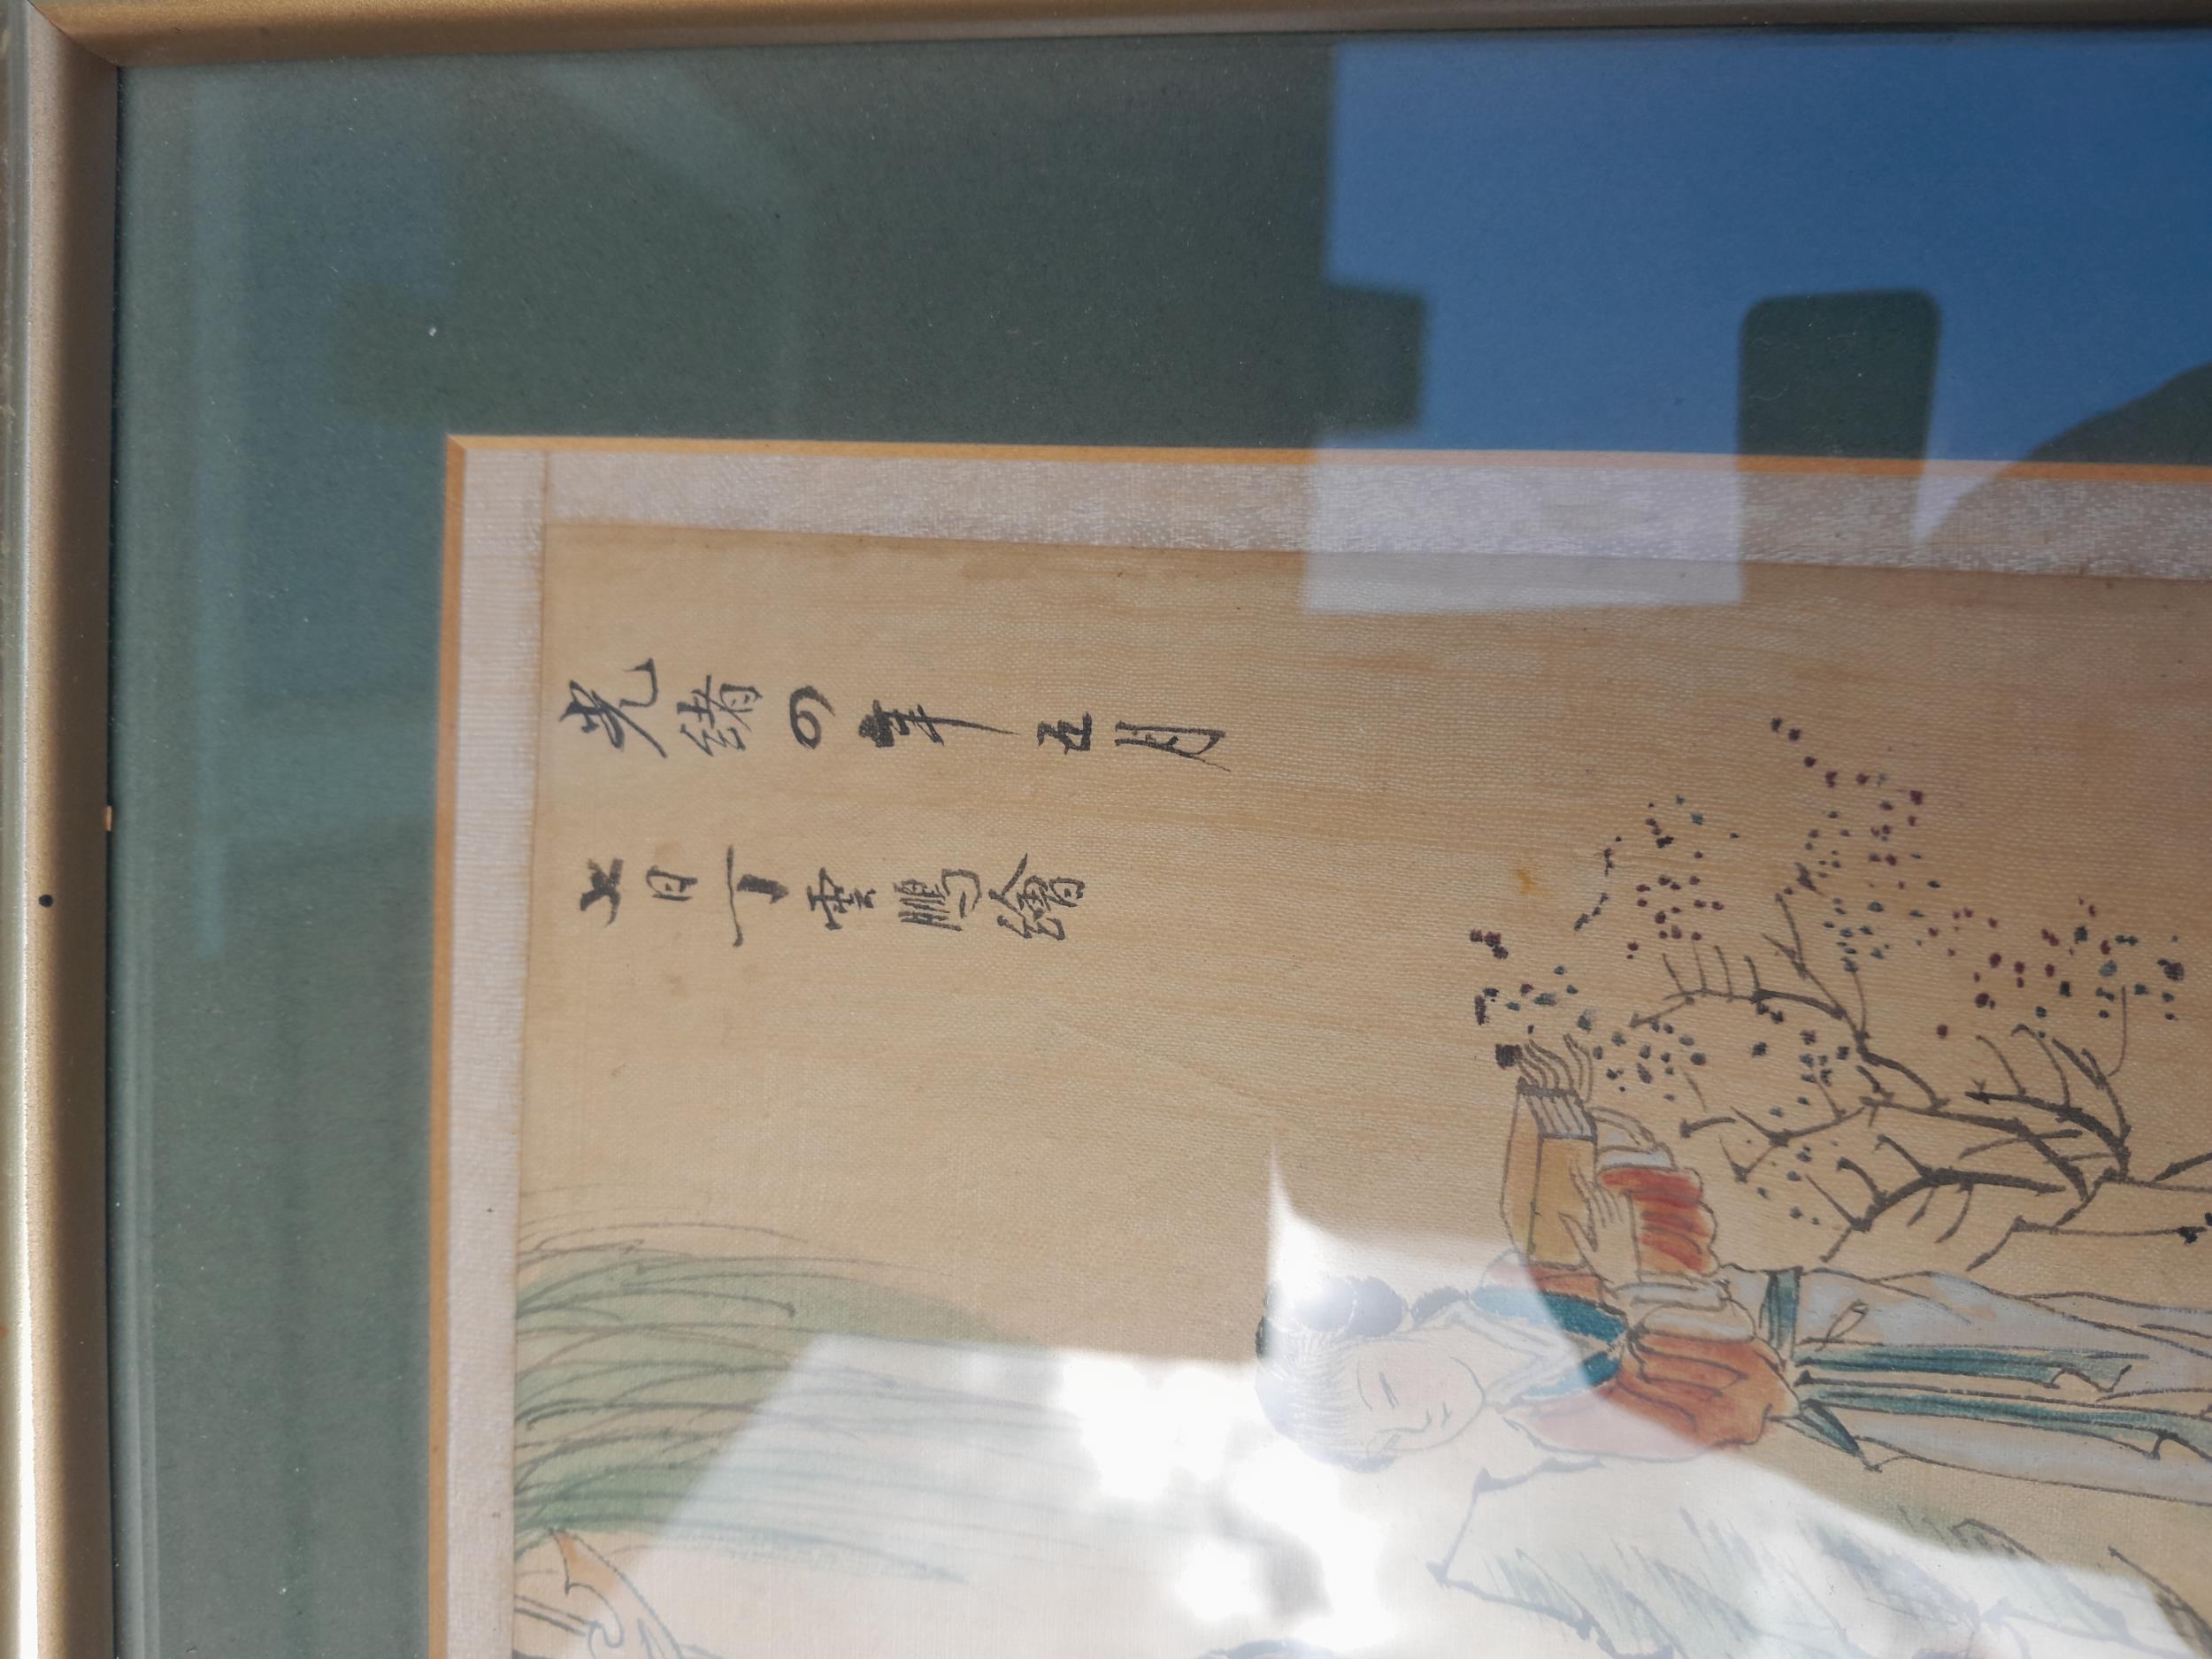 光緒四年五月
七日丁雲鵬繪